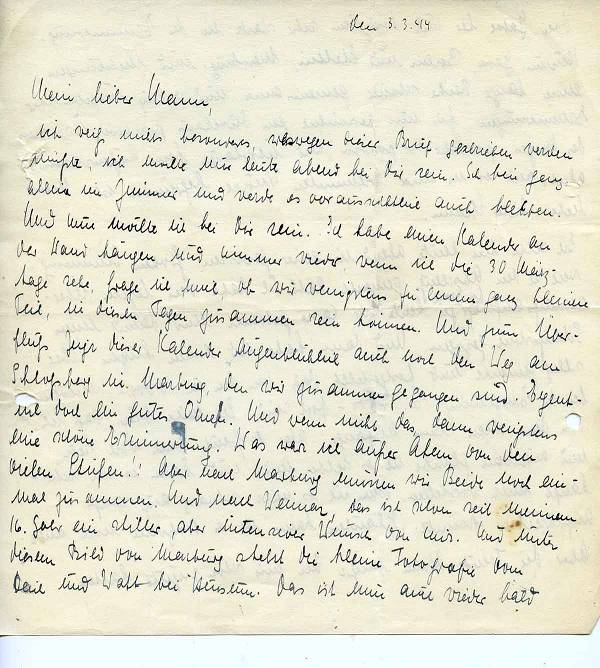 den 3.3.44
Mein lieber Mann,
ich weiß nichts besonders, weswegen dieser Brief geschrieben werden
müßte, ich wollte nur heute abend bei Dir sein. Ich bin ganz
allein im Zimmer und werde es voraussichtlich auch bleiben.
Und nun möchte ich bei Dir sein. Ich habe einen Kalender an
der Wand hängen und immer wieder, wenn ich die 30 März-
tage sehe, frage ich mich, ob wir wenigstens für einen ganz kleinen
Teil, in diesen Tagen zusammen sein können. Und zum Über-
fluß zeigt dieser Kalender augenblicklich auch noch den Weg am
Schloßberg in Marburg, den wir zusammen gegangen sind. Eigent-
lich doch ein gutes Omen. Und wenn nicht das, dann wenigstens
eine schöne Erinnerung. Was war ich außer Atem von den
vielen Stufen!! Aber nach Marburg müssen wir Beide noch ein-
mal zusammen. Und nach Weimar, das ist schon seit meinem
16. Jahr ein stiller, aber intensiver Wunsch von mir. Und unter
diesem Bild von Marburg steckt die kleine Fotografie vom
Deich und Watt bei Husum. Das ist nun auch wieder bald